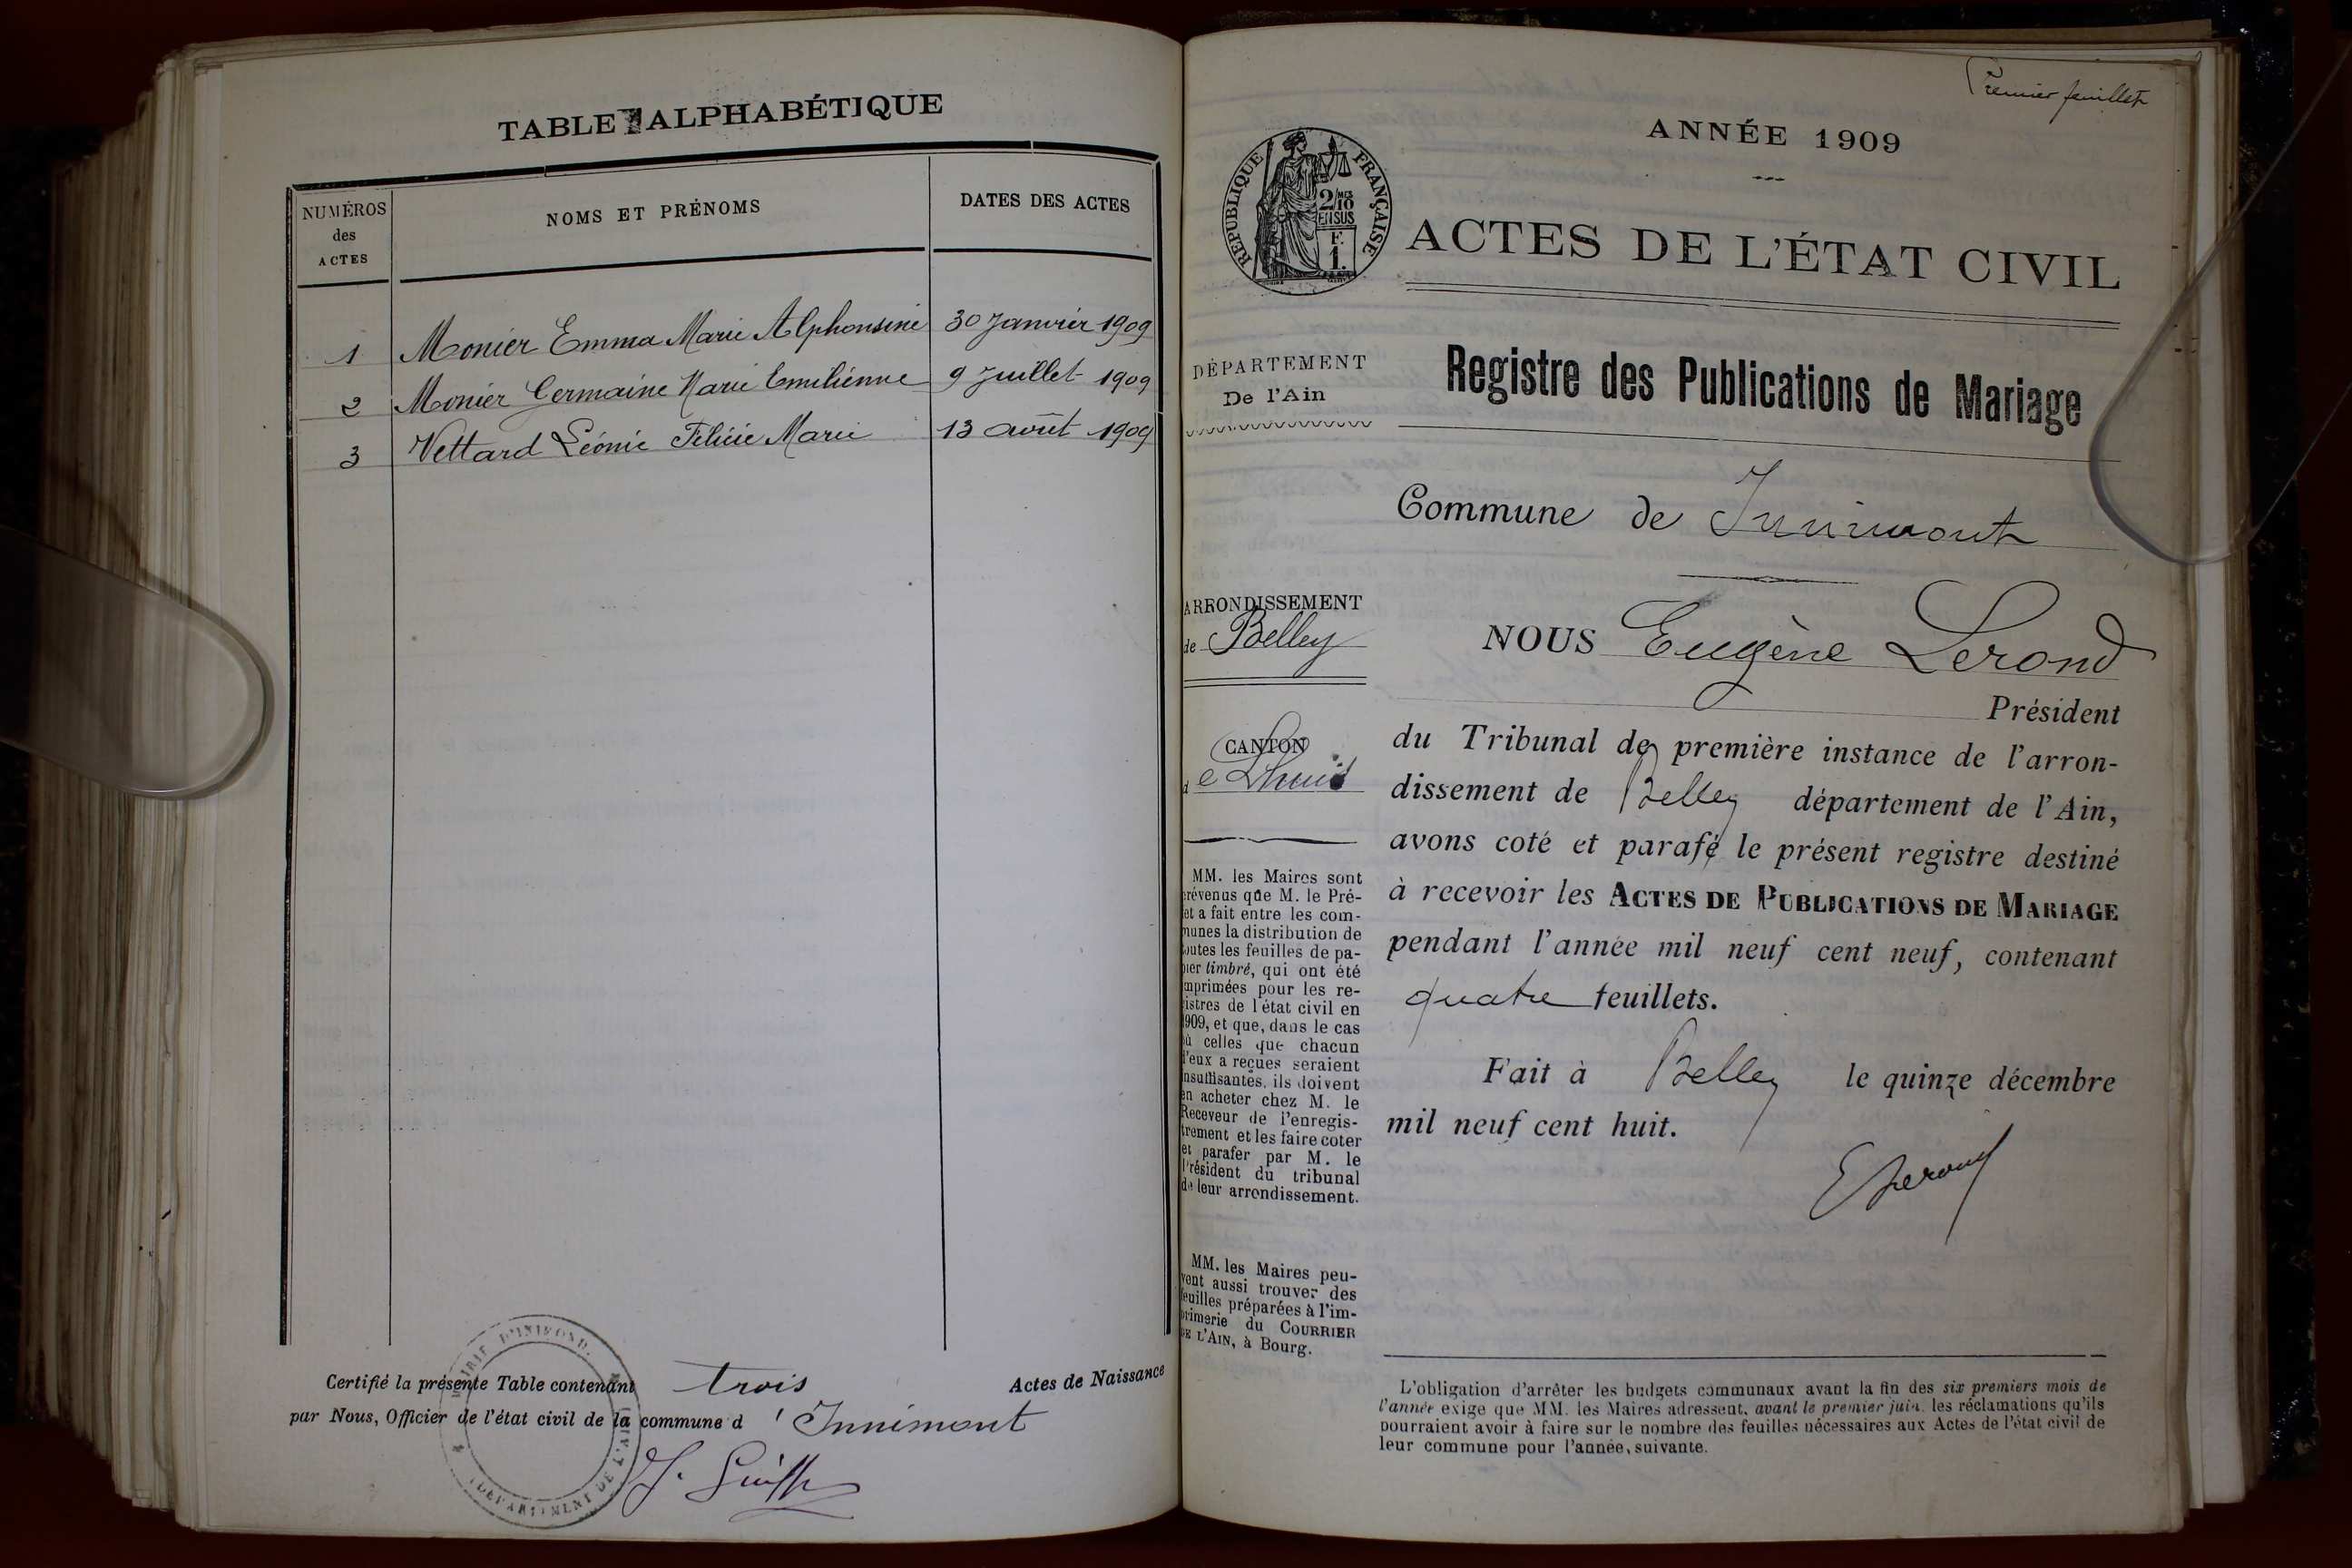 TABLE ALPHABÉTIQUE
NUMÉROS
des
ACTES
NOMS ET PRÉNOMS
DATES DES ACTES
1 Monier Emma Marie Alphonsine 30 Janvier 1909
2 Monier Germaine Marie Emilienne 9 Juillet 1909
3 Vettard Léonie Félicie Marie 13 août 1909
Certifié la présente Table contenant trois Actes de Naissance
par Nous, Officier de l'état civil de la commune d'Innimont
Premier feuillet
ANNÉE 1909
RÉPUBLIQUE FRANÇAISE
2/10
EN SUS
F.
1.
ACTES DE L'ÉTAT CIVIL
DÉPARTEMENT
De l'Ain
Registre des Publications de Mariage
Commune de Innimont
ARRONDISSEMENT
de Belley
CANTON
de Lhuis
MM. les Maires sont
prévenus que M. le Pré-
fet a fait entre les com-
munes la distribution de
toutes les feuilles de pa-
pier timbré, qui ont été
imprimées pour les re-
gistres de l'état civil en
1909, et que, dans le cas
où celles que chacun
d'eux a reçues seraient
insuffisantes, ils doivent
en acheter chez M. le
Receveur de l'enregis-
trement et les faire coter
et parafer par M. le
Président du tribunal
de leur arrondissement.
MM. les Maires peu-
vent aussi trouver des
feuilles préparées à l'im-
primerie du COURRIER
DE L'AIN, à Bourg.
NOUS Eugène Lerond
Président
du Tribunal de première instance de l'arron-
dissement de Belley département de l'Ain,
avons coté et parafé le présent registre destiné
à recevoir les ACTES DE PUBLICATIONS DE MARIAGE
pendant l'année mil neuf cent neuf, contenant
quatre feuillets.
Fait à Belley le quinze décembre
mil neuf cent huit.
E Lerond
L'obligation d'arrêter les budgets communaux avant la fin des six premiers mois de
l'année exige que MM. les Maires adressent, avant le premier juin, les réclamations qu'ils
pourraient avoir à faire sur le nombre des feuilles nécessaires aux Actes de l'état civil de
leur commune pour l'année suivante.